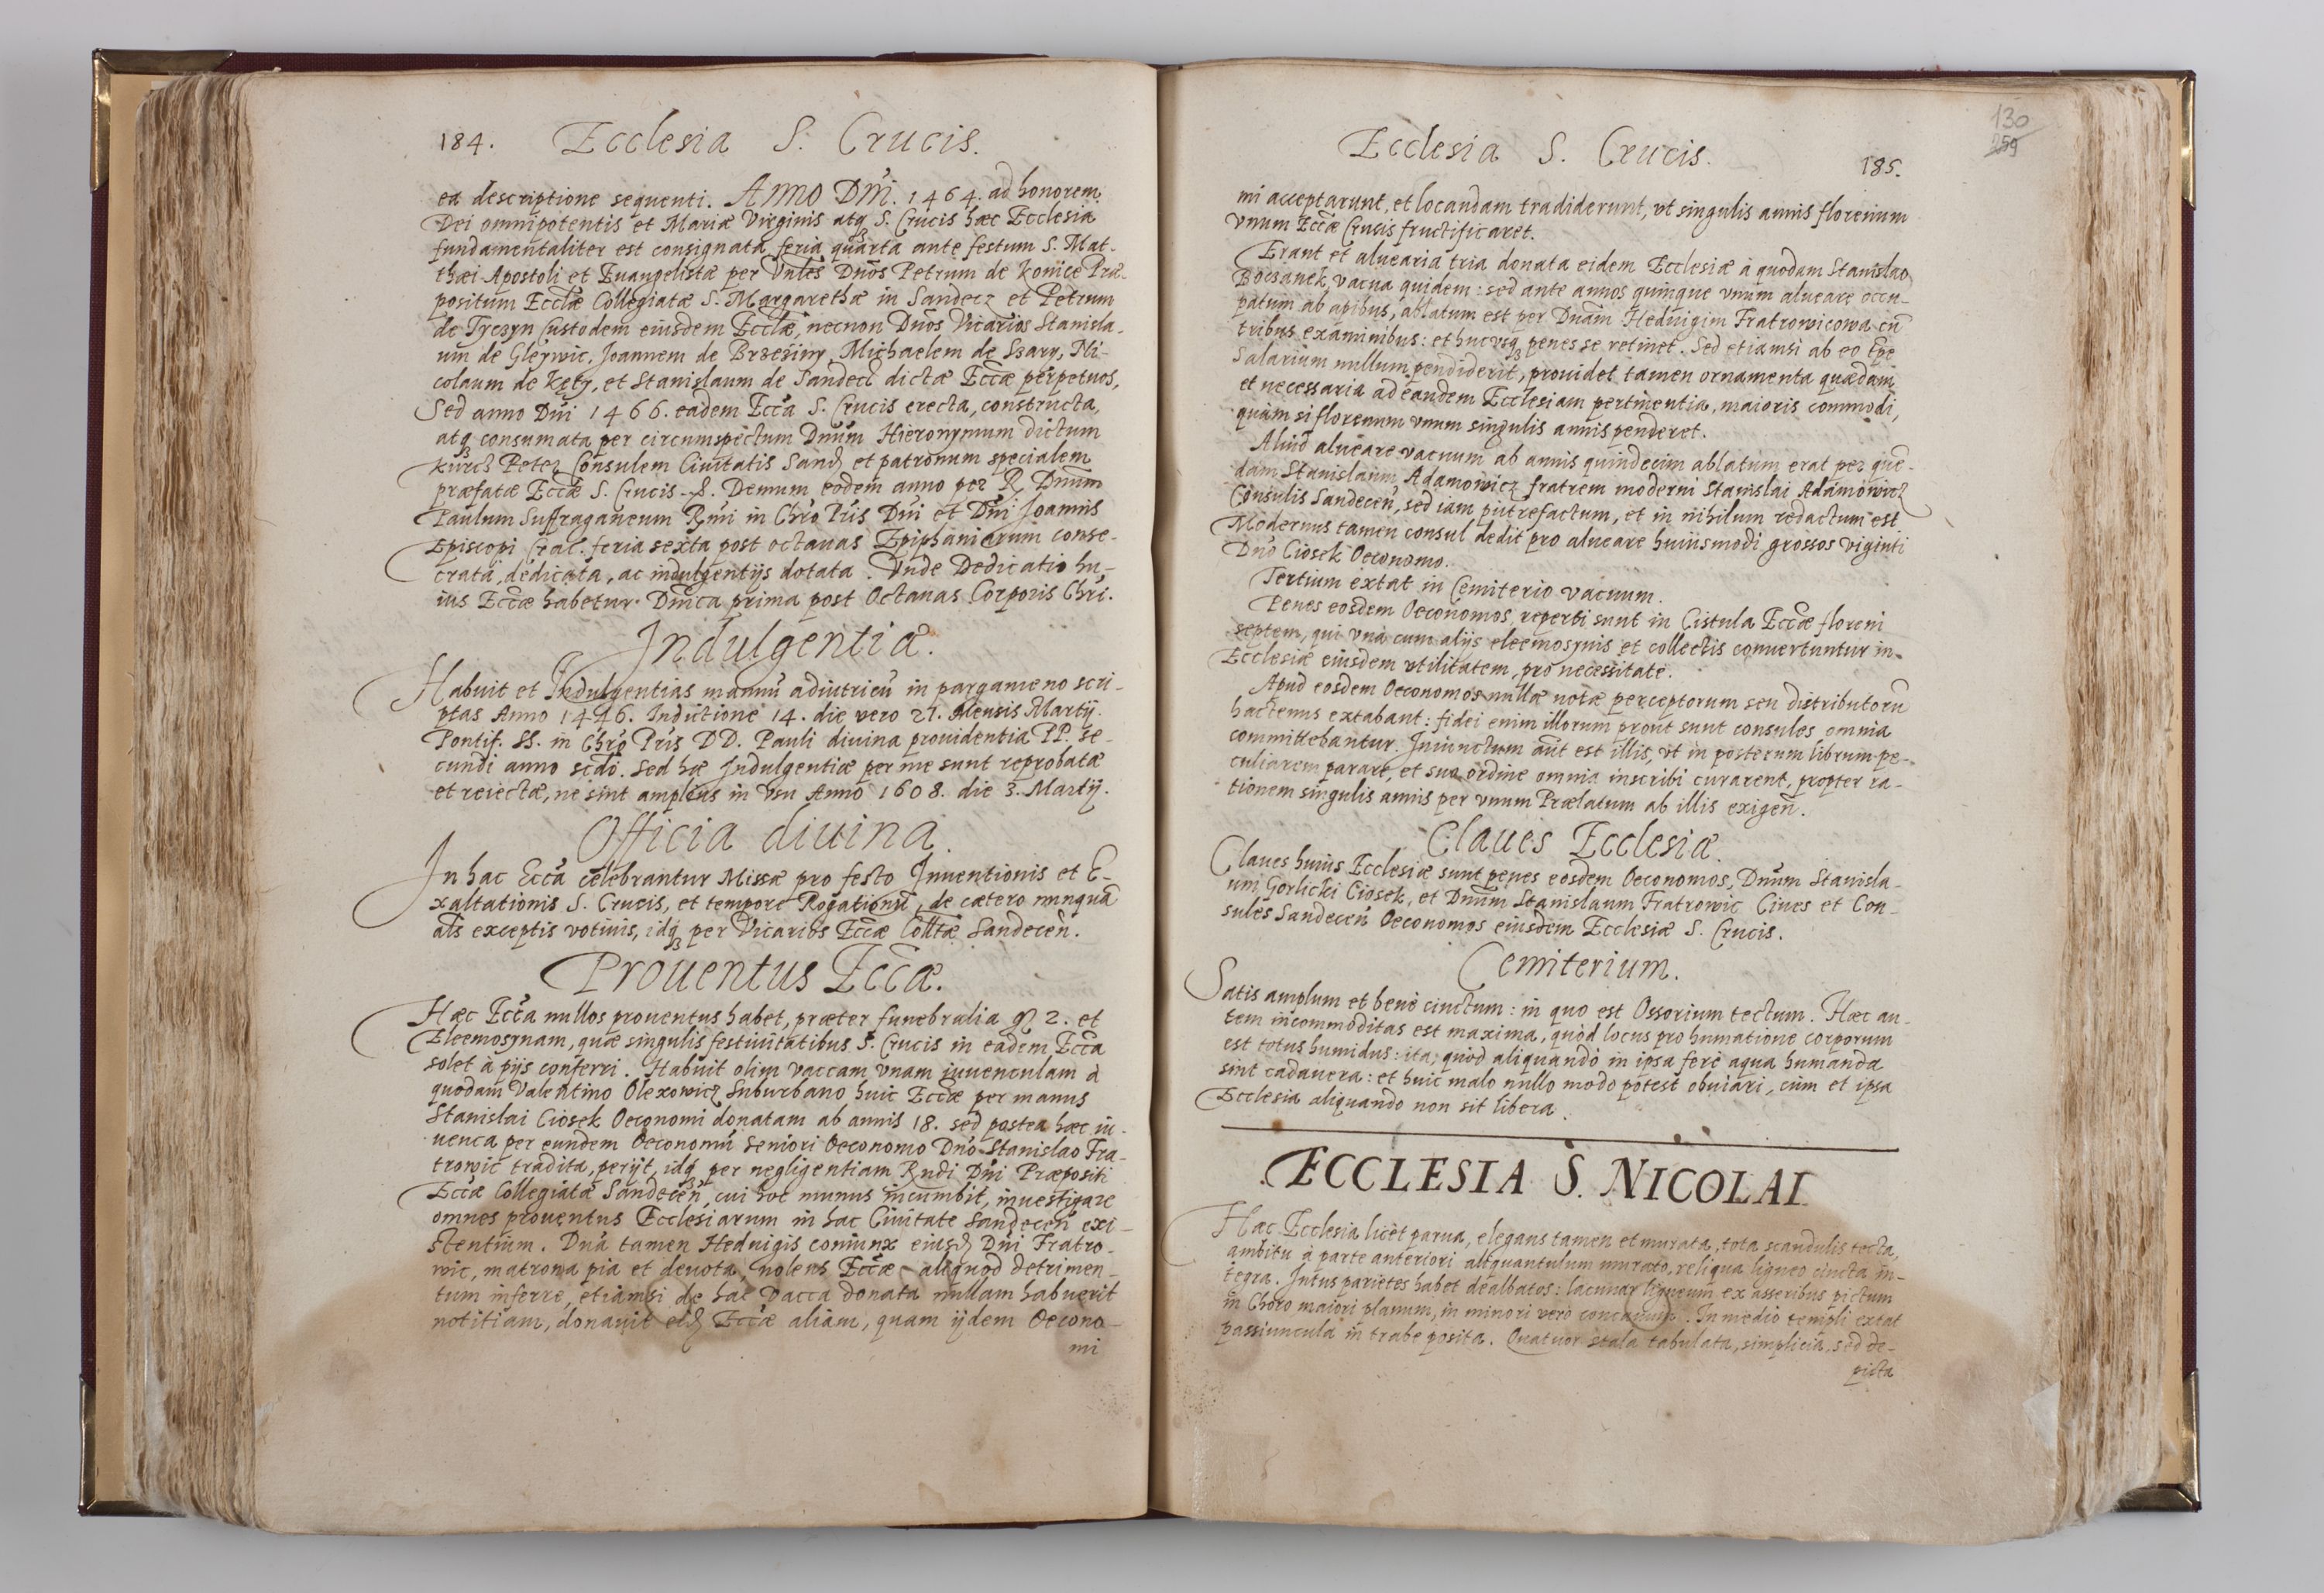 184. Ecclesia S. Crucis.
ea descriptione sequenti. Anno Dñi. 1464. ad honorem
Dei omnipotentis et Mariæ Virginis atq; S. Crucis hæc Ecclesia
fundamentaliter est consignata feria quarta ante festum S. Mat-
thæi Apostoli et Euangelistæ per Vnłes Dños Petrum de Konice Præ-
positum Ecclæ Collegiatæ S. Margarethæ in Sandecz et Petrum
de Tyczyn Custodem eiusdem Ecclæ, necnon Dños Vicarios Stanisla-
um de Gleywic, Joannem de Brzeziny, Michaelem de Szary, Ni-
colaum de Kęty, et Stanislaum de Sandecz dictæ Eccæ perpetuos,
Sed anno Dñi 1466. eadem Ecca S. Crucis erecta, constructa,
atq; consumata per circumspectum Dnum Hieronymum dictum
Kurcz Petez Consulem Ciuitatis Sand. et patronum specialem
præfatæ Eccæ S. Crucis. Demum eodem anno per R. Dnum
Paulum Suffraganeum Rmi in Chro Pris Dñi et Dñi Joannis
Episcopi Crac. feria sexta post octauas Epiphaniarum conse-
crata, dedicata, ac indulgentijs dotata. Vnde Dedicatio hu-
ius Eccæ habetur Dñica prima post Octauas Corporis Chri.
Indulgentiæ.
Habuit et Indulgentias manuũ adiutricũ in pargameno scri-
ptas Anno 1446. Indictione 14. die vero 21. Mensis Martij.
Pontif. SS. in Chro Pris DD. Pauli diuina prouidentia PP. se-
cundi anno scdo. Sed hæ Indulgentiæ per me sunt reprobatæ
et reiectæ, ne sint amplius in vsu Anno 1608. die 3. Martij.
Officia diuina.
In hac Ecca celebrantur Missæ pro festo Inuentionis et E-
xaltationis S. Crucis, et tempore Rogationũ, de cætero nunquã
als exceptis votiuis, idq; per Vicarios Eccæ Colltæ Sandeceñ.
Prouentus Eccæ.
Hæc Ecca nullos prouentus habet, præter funebralia 2. et
Eleemosynam, quæ singulis festiuitatibus S. Crucis in eadem Ecca
solet à pijs conferri. Habuit olim vaccam vnam iuuenculam à
quodam Valentino Olexowicz Suburbano huic Eccæ per manus
Stanislai Ciosek Oeconomi donatam ab annis 18. sed postea hæc iu-
uenca per eundem Oeconomũ Seniori Oeconomo Dño Stanislao Fra-
trowic tradita, perijt, idq; per negligentiam Rndi Dñi Præpositi
Eccæ Collegiatæ Sandeceñ, cui hoc munus incumbit, inuestigare
omnes prouentus Ecclesiarum in hac Ciuitate Sandeceñ exi-
stentium. Dna tamen Heduigis coniunx eiusd. Dñi Fratro-
wic, matrona pia et deuota, nolens Eccæ aliquod detrimen-
tum inferre, etiamsi de hac vacca donata nullam habuerit
notitiam, donauit eid. Eccæ aliam, quam ijdem Oecono-
mi
130
259
Ecclesia S. Crucis. 185.
mi acceptarunt, et locandam tradiderunt, vt singulis annis florenum
vnum Eccæ Crucis fructificaret.
Erant et aluearia tria donata eidem Ecclesiæ à quodam Stanislao
Boczanek, vacua quidem: sed ante annos quinque vnum alueare occu-
patum ab apibus, ablatum est per Dnam Heduigim Fratrowicowa cũ
tribus examinibus: et hucvsq; penes se retinet. Sed etiamsi ab eo tpe
Salarium nullum pendiderit, prouidet tamen ornamenta quædam
et necessaria ad eandem Ecclesiam pertinentia, maioris commodi,
quàm si florenum vnum singulis annis penderet.
Aliud alueare vacuum ab annis quindecim ablatum erat per quẽ-
dam Stanislaum Adamowicz fratrem moderni Stanislai Adamowicz
Consulis Sandeceñ, sed iam putrefactum, et in nihilum redactum est
Modernus tamen consul dedit pro alueare huiusmodi grossos viginti
Dno Ciosek Oeconomo.
Tertium extat in Cemiterio vacuum.
Penes eosdem Oeconomos, reperti sunt in Cistula Eccæ floreni
septem, qui vnà cum alijs eleemosynis et collectis conuertuntur in
Ecclesiæ eiusdem vtilitatem, pro necessitate.
Apud eosdem Oeconomos nullæ notæ perceptorum seu distributorũ
hactenus extabant: fidei enim illorum prout sunt consules omnia
committebantur. Iniunctum aũt est illis, vt in posterum librum pe-
culiarem parare, et suo ordine omnia inscribi curarent, propter ra-
tionem singulis annis per vnum Prælatum ab illis exigeñ.
Claues Ecclesiæ.
Claues huius Ecclesiæ sunt penes eosdem Oeconomos, Dnum Stanisla-
um Gorlicki Ciosek, et Dnum Stanislaum Fratrowic Ciues et Con-
sules Sandeceñ Oeconomos eiusdem Ecclesiæ S. Crucis.
Cemiterium.
Satis amplum et benè cinctum: in quo est Ossorium tectum. Hæc au-
tem incommoditas est maxima, quòd locus pro humatione corporum
est totus humidus: ita, quòd aliquando in ipsa ferè aqua humanda
sint cadauera: et huic malo nullo modo potest obuiari, cùm et ipsa
Ecclesia aliquando non sit libera.
ECCLESIA S. NICOLAI
Hæc Ecclesia licèt parua, elegans tamen et murata, tota scandulis tecta,
ambitu à parte anteriori aliquantulum murato, reliqua ligneo cincta in-
tegra. Intus parietes habet dealbatos: lacunar ligneum ex asseribus pictum
in Choro maiori planum, in minori verò concauum. In medio templi extat
passiuncula in trabe posita. Quatuor stala tabulata, simplicia, sed de-
picta